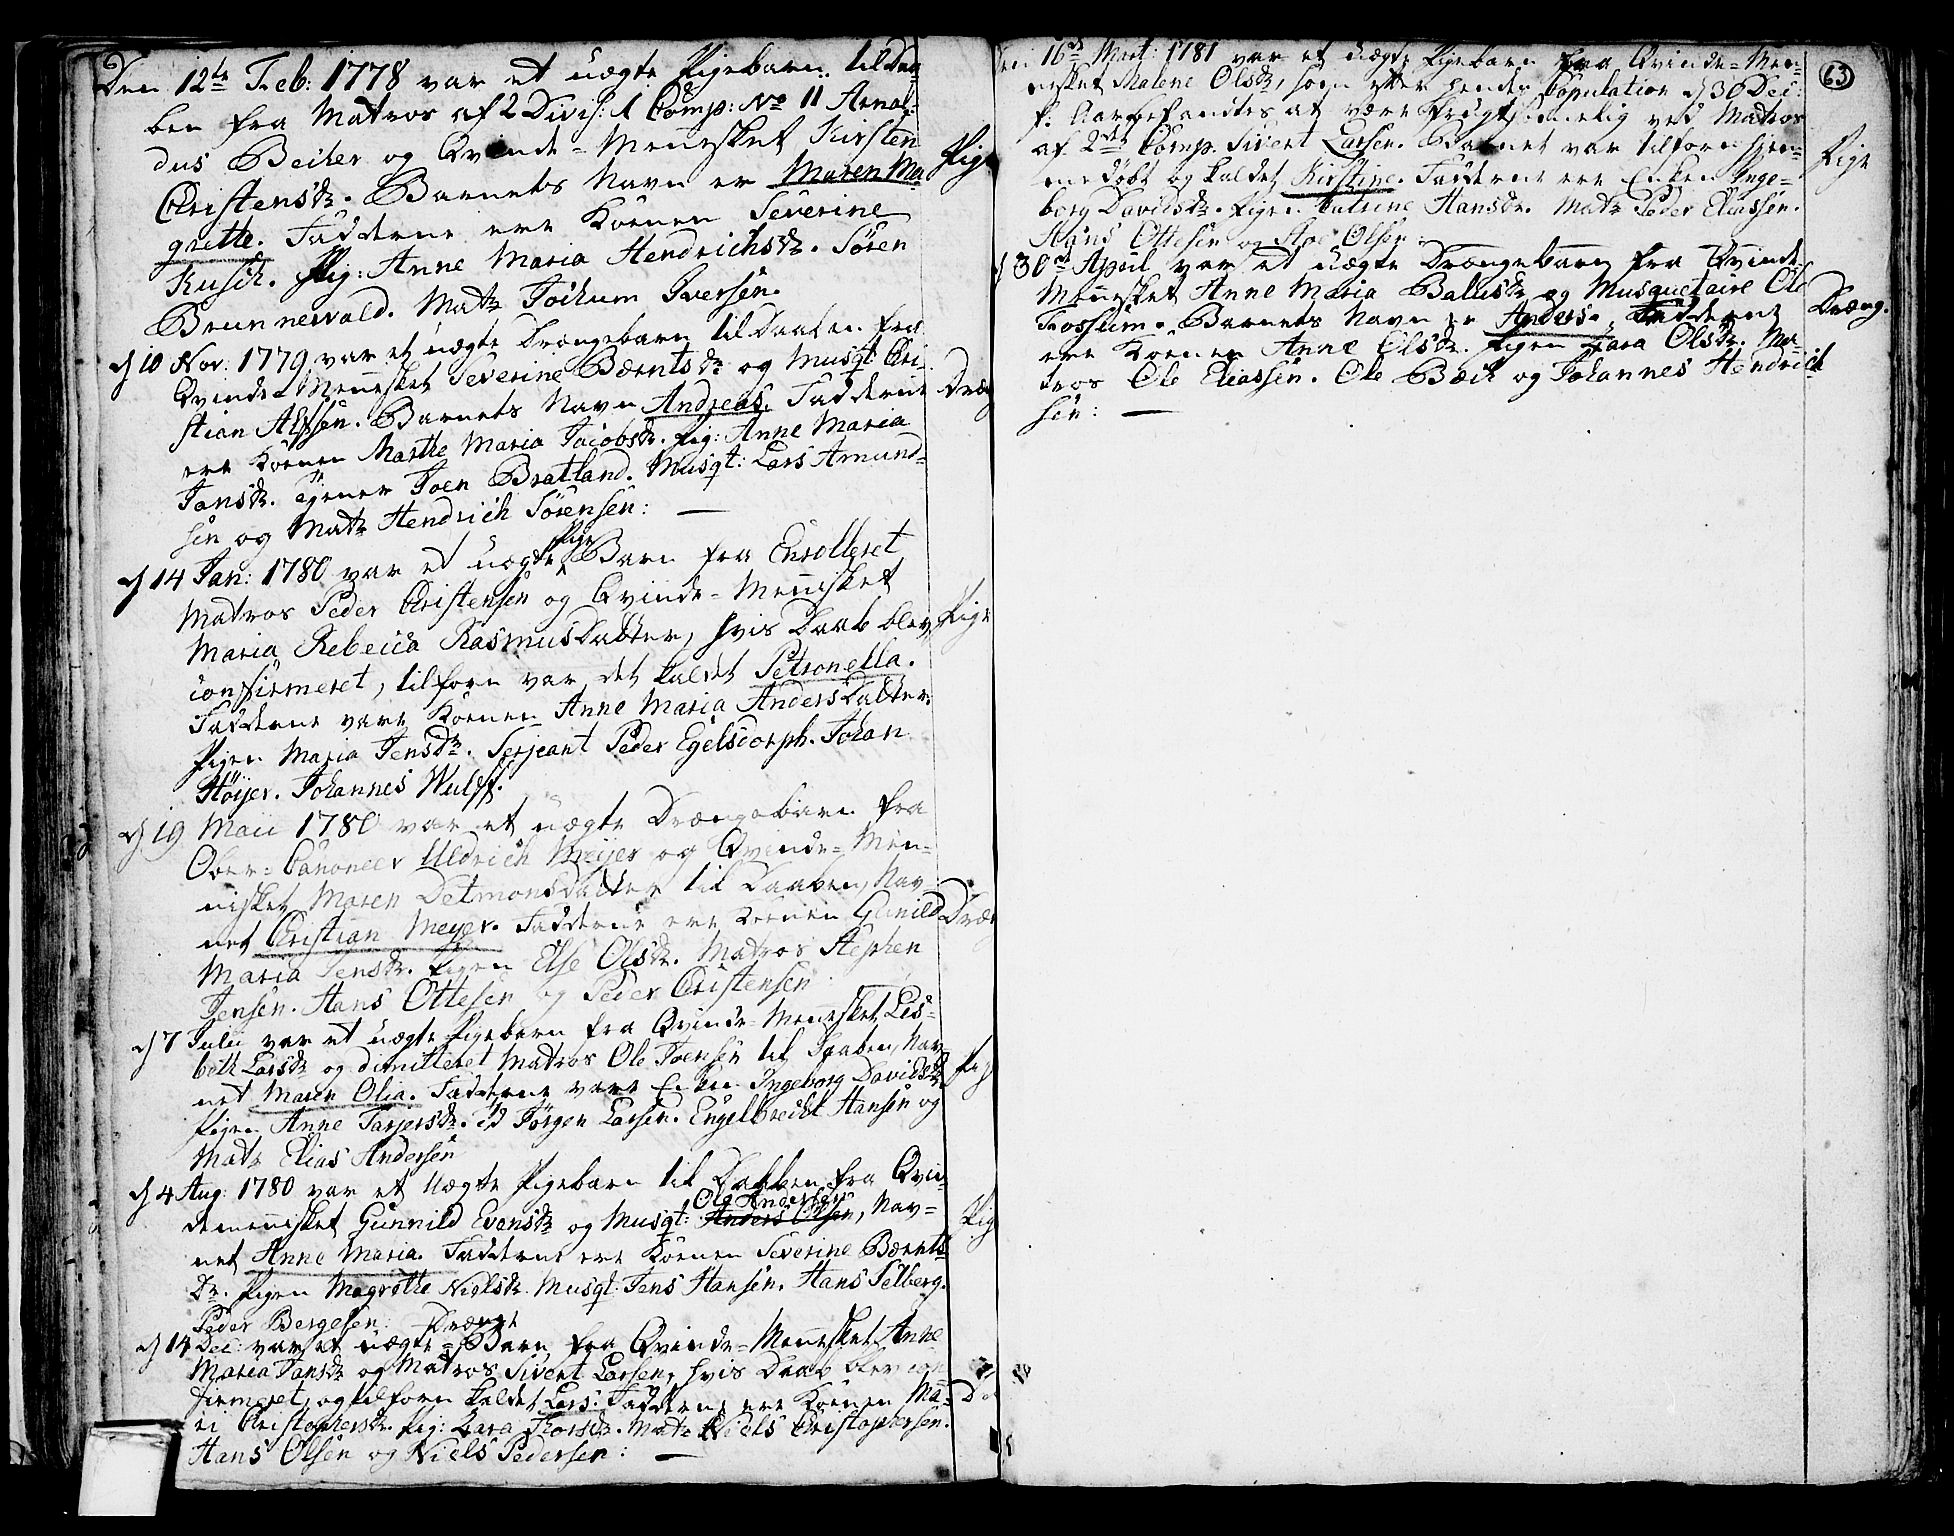 Den 12te Feb: 1778 var et uægte Pigebarn til Daa-
ben fra Matros af 2 Divis: 1 Comp: No 11 Arnol-
dus Becher og Qvinde-Mennesket Kirsten
Christensdr. Barnets Navn er Maren Ma-
grette. Fadderne ere Konen Severine
Kusch. Pig: Anne Maria Hendrichsdr. Sören
Brunnevald. Matr Jochum Iversen.
Pige
d 10 Nov: 1779 var et uægte Drængebarn til Daaben fra
Qvinde-Mennesket Severine Bærntsdr og Musqt: Chri-
stian Alfsen. Barnets Navn Andreas. Fadderne
ere Konen Marthe Maria Jacobsdr. Pig: Anne Maria
Jansdr. Tjener Joen Bratland. Musqt: Lars Amund-
sen og Matr Hendrich Sörensen:
Dræ
d 14 Jan: 1780 var et uægte Pige Barn fra Enrolleret
Matros Peder Christensen og Qvinde-Mennisket
Maria Rebecca Rasmusdatter, hvis Daab blev
confirmeret, tilforn var det kaldet Petronella.
Fadderne vare Konen Anne Maria Andersdatter.
Pigen Maria Jensdr. Serjeant Peder Egelsdorph. Johan
Höijer. Johannes Wulff.
Pige
d 19 Maii 1780 var et uægte Drængebarn fra
Over-Canoneer Uldrich Meijer og Qvinde-Men-
nisket Maren Detmorsdatter til Daaben, Nav-
net Christian Meyer. Fadderne ere Konen Gunild
Maria Jensdr. Pigen Else Olsdr. Matros Stephen
Jensen. Hans Ottesen og Peder Christensen:
Dræ
d 7 Julii var et uægte Pigebarn fra Qvinde-Mennesket Lis-
beth Larsdr og dimitteret Matros Ole Joensen til Daaben, Nav-
net Maren Olia. Fadderne vare Enken Ingeborg Davidsdr
Pigen Anne Tarjersdr. Jörgen Larsen. Engelbrecht Hansen og
Matr Elias Andersen
Pig
d 4 Aug: 1780 var et Uægte Pigebarn til Daaben fra Qvin-
demennisket Gunnild Evensdr og Musqt: Anders Olsen Ole Andersen, Nav-
net Anne Maria. Fadderne ere Konen Severine Bærnts-
Dr. Pigen Magrethe Nielsdr. Musqt: Jens Hansen. Hans Selberg.
Peder Bergesen:
Pig
d 14 Dec: var et uægte Drænge-Barn fra Qvinde-Mennesket Anne
Maria Jansdr og Matros Sivert Larsen, hvis Daab blev con-
firmeret, og tilforn kaldet Lars. Fadderne ere Konen Ma-
ri Christophersdr. Pig: Lara Thorsdr. Matr Niels Christophersen.
Hans Olsen og Niels Pedersen:
D
63
Den 16de Mart: 1781 var et uægte Pigebarn fra Qvinde-Men-
nesket Malene Olsdr, som efter hendes Copulation d 30 Dec:
f: Aar befandtes at være frugtsommelig ved Matros
af 2det Comp. Sivert Larsen. Barnet var tilforn hiem-
me döbt og kaldet Kirstine. Fadderne ere Enken Inge-
borg Davidsdr. Pigen Catrine Hansdr. Matr Peder Eliassen.
Hans Ottesen og Olsen:
Pige
d 30te April var et uægte Drængebarn fra Qvinde-
Mennesket Anne Maria Ballesdr og Musquetaire Ole
Fossum. Barnets Navn er Anders. Fadderne
ere Konen Anne Olsdr. Pigen Lara Olsdr. Ma-
tros Ole Eliassen. Ole Bæch og Johannes Hendrich-
sen:
Dræng.